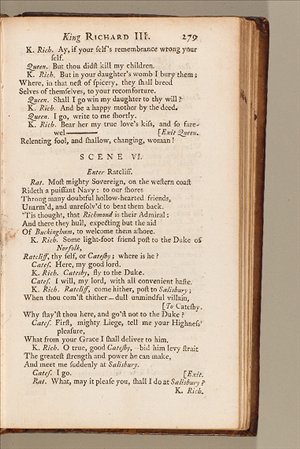 King RICHARD III. 279
K. Rich. Ay, if your self's remembrance wrong your
self.
Queen. But thou didſt kill my children.
K. Rich. But in your daughter's womb I bury them;
Where, in that neſt of ſpicery, they ſhall breed
Selves of themſelves, to your recomforture.
Queen. Shall I go win my daughter to thy will?
K. Rich. And be a happy mother by the deed.
Queen. I go, write to me ſhortly.
K. Rich. Bear her my true love's kiſs, and ſo fare-
wel—— [Exit Queen.
Relenting fool, and ſhallow, changing, woman!
SCENE VI.
Enter Ratcliff.
Rat. Moſt mighty Sovereign, on the weſtern coaſt
Rideth a puiſſant Navy: to our ſhores
Throng many doubtful hollow-hearted friends,
Unarm'd, and unreſolv'd to beat them back.
'Tis thought, that Richmond is their Admiral:
And there they hull, expecting but the aid
Of Buckingham, to welcome them aſhore.
K. Rich. Some light-foot friend poſt to the Duke of
Norfolk,
Ratcliff, thy ſelf, or Cateſby; where is he?
Cateſ. Here, my good lord.
K. Rich. Cateſby, fly to the Duke.
Cateſ. I will, my lord, with all convenient haſte.
K. Rich. Ratcliff, come hither, poſt to Salisbury;
When thou com'ſt thither—dull unmindful villain,
[To Cateſby.
Why ſtay'ſt thou here, and go'ſt not to the Duke?
Cateſ. Firſt, mighty Liege, tell me your Highneſs'
pleaſure,
What from your Grace I ſhall deliver to him.
K. Rich. O true, good Cateſby,—bid him levy ſtrait
The greateſt ſtrength and power he can make,
And meet me ſuddenly at Salisbury.
Cateſ. I go. [Exit.
Rat. What, may it pleaſe you, ſhall I do at Salisbury?
K. Rich.